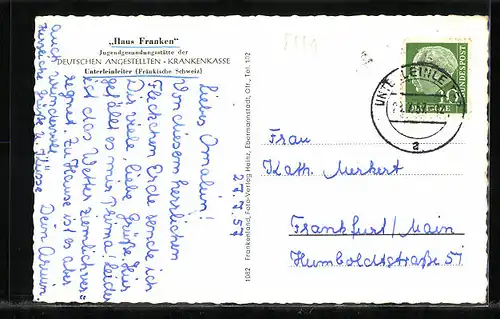 „Haus Franken"
Jugendgesundungsstätte der
DEUTSCHEN ANGESTELLTEN • KRANKENKASSE
Unterleinleiter (Fränkische Schweiz)
27.7.57
Liebes Omalein!
Von diesem herrlichen
Fleckchen Erde sende ich
Dir viele, liebe Grüße. Hier
gefällt es mir prima! Leider
ist das Wetter ziemlich ver=
regnet. Zu Hause ist es aber
auch wunderschön
Herzliche Grüße u. Küsse Dein Armin.
1082 Frankenland, Foto-Verlag Heinz, Ebermannstadt, Ofr., Tel. 102
UNTERLEINLEITER
a
DEUTSCHE BUNDESPOST
Frau
Kath. Merkert
Frankfurt/Main
Humboldtstraße 51